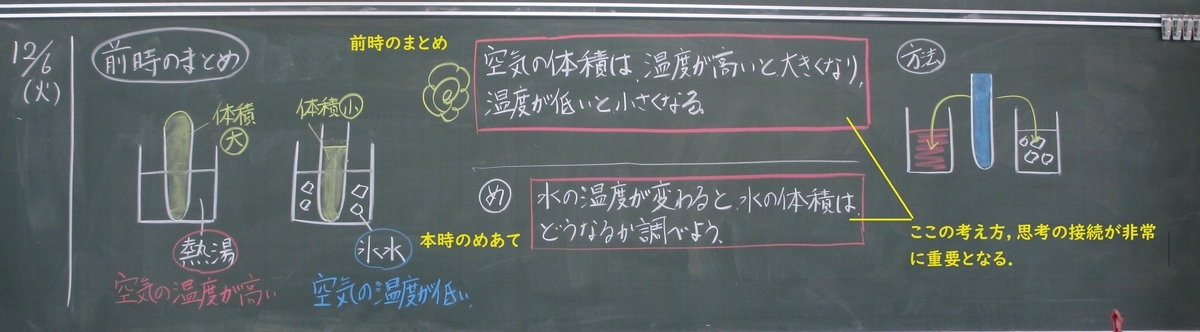 12/6
(火)
前時のまとめ
体積
大
体積小
熱湯
氷水
空気の温度が高い
空気の温度が低い
前時のまとめ
空気の体積は、温度が高いと大きくなり、
温度が低いと小さくなる。
め
水の温度が変わると、水の体積は、
どうなるか調べよう。
本時のめあて
方法
ここの考え方，思考の接続が非常
に重要となる．